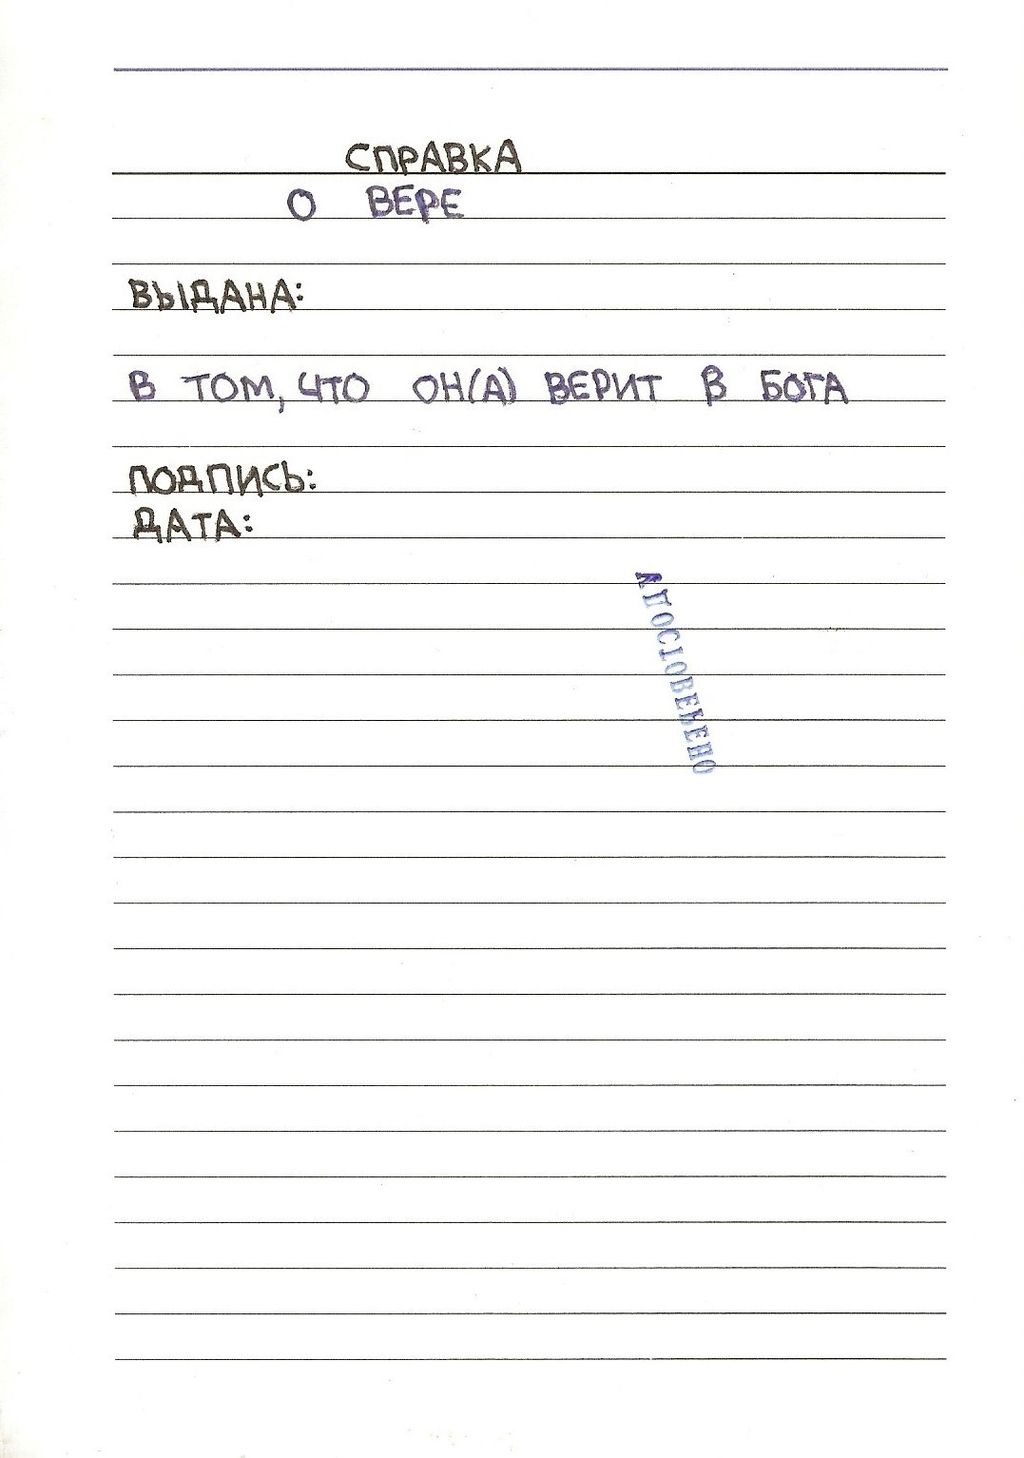 СПРАВКА
О ВЕРЕ
ВЫДАНА:
В ТОМ, ЧТО ОН(А) ВЕРИТ В БОГА
ПОДПИСЬ:
ДАТА: